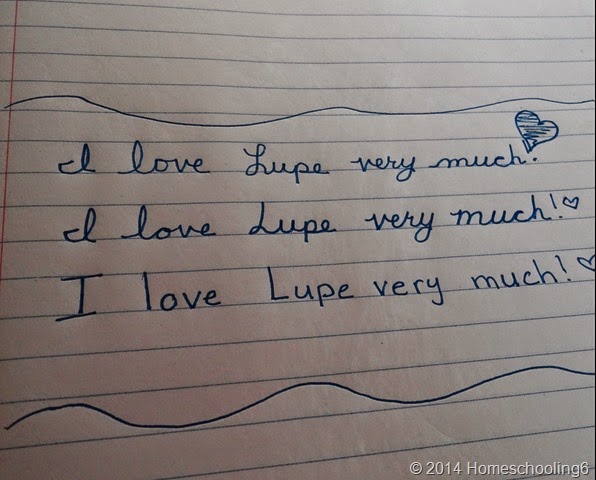 I love Lupe very much!
I love Lupe very much!♡
I love Lupe very much!♡
© 2014 Homeschooling6